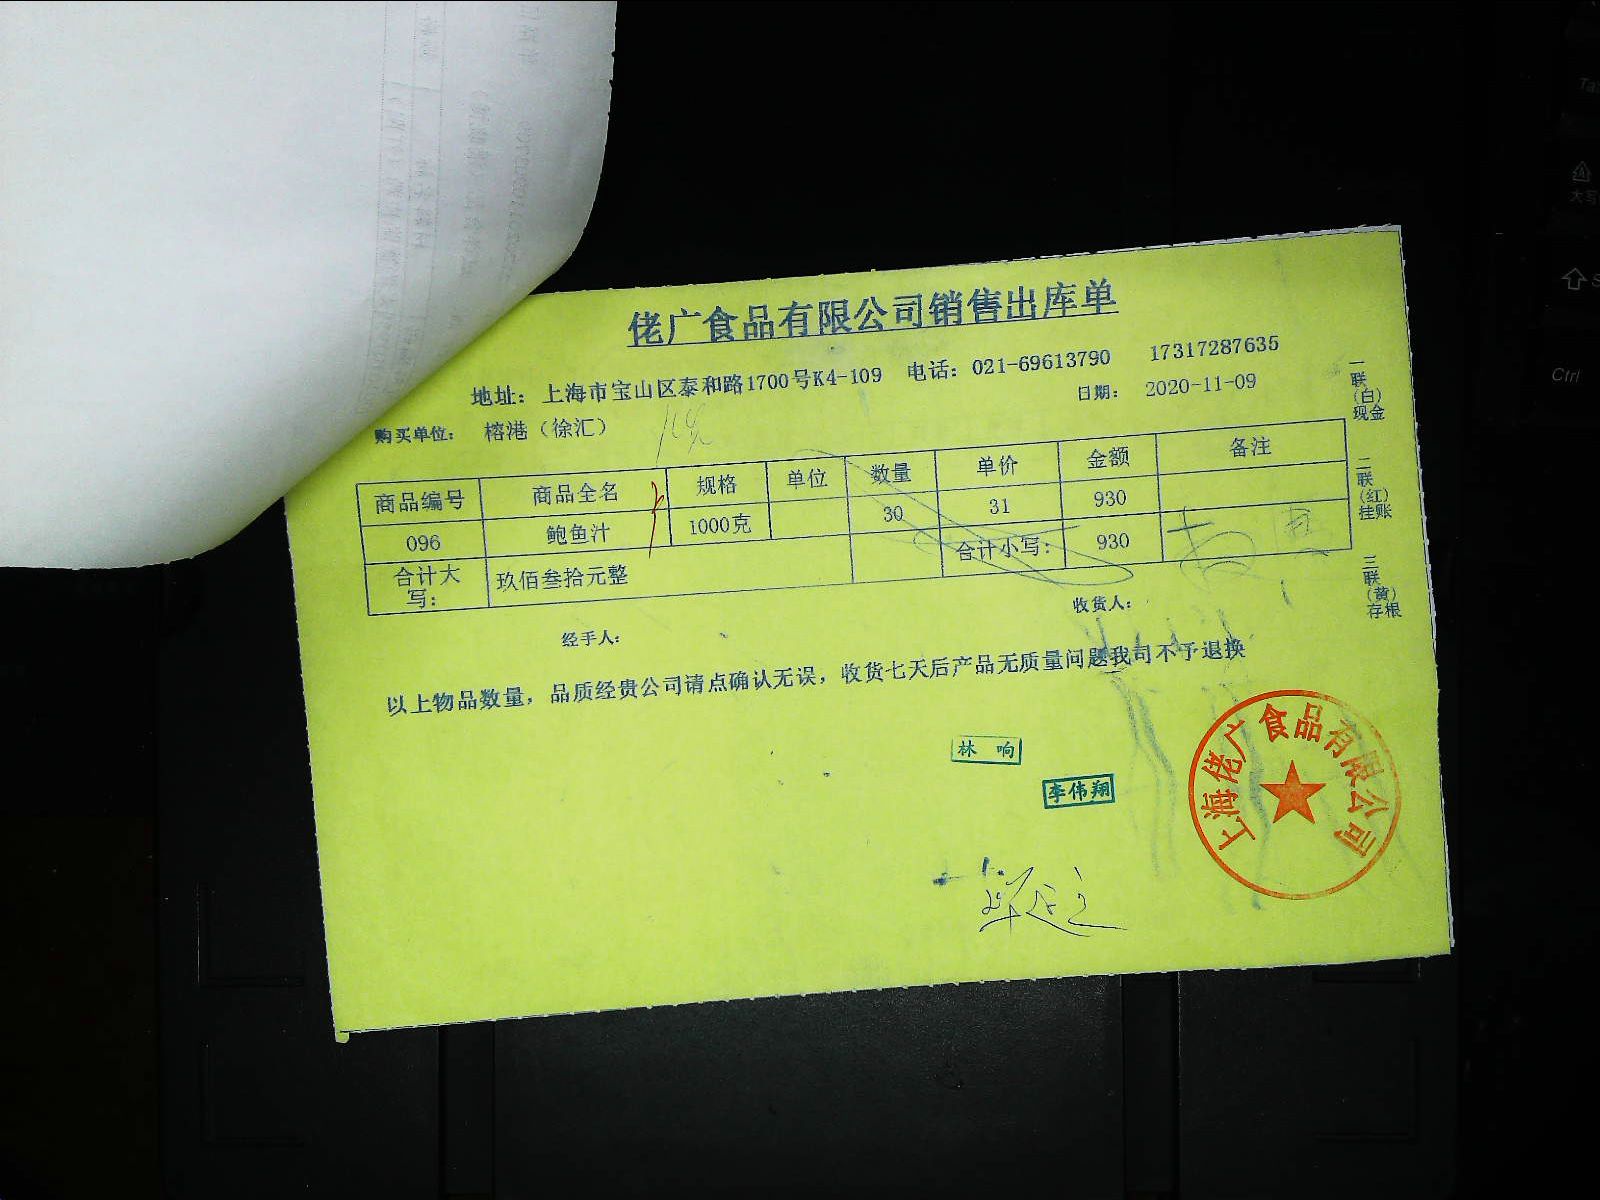 佬广食品有限公司销售出库单
地址: 上海市宝山区泰和路1700号K4-109 电话: 021-69613790 17317287635
日期: 2020-11-09
购买单位: 榕港（徐汇）
商品编号 商品全名 规格 单位 数量 单价 金额 备注
096 鲍鱼汁 1000克 30 31 930
合计大写: 玖佰叁拾元整 合计小写: 930
经手人: 收货人:
以上物品数量，品质经贵公司请点确认无误，收货七天后产品无质量问题我司不予退换
一联(白)现金
二联(红)挂账
三联(黄)存根
林响
李伟翔
上海佬广食品有限公司
大写
Ctrl